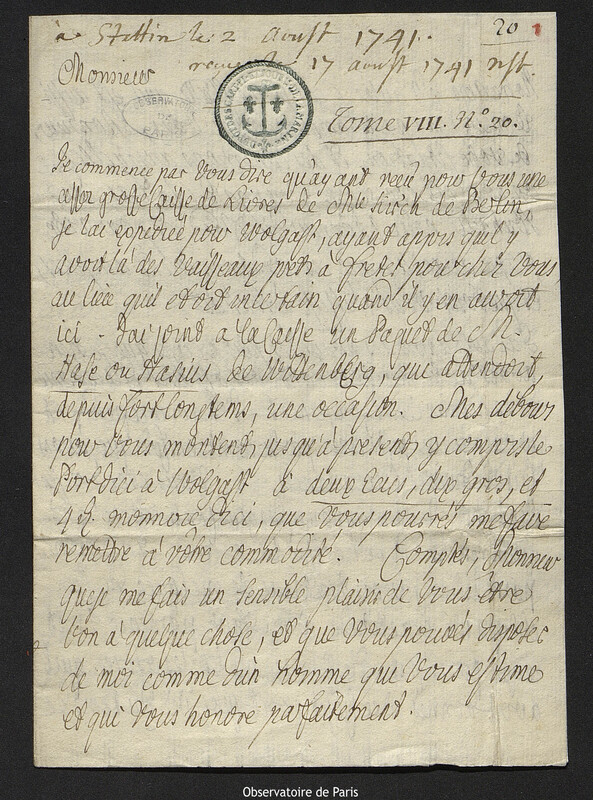 à Stettin le 2 aoust 1741.
20 1
receue le 17 aoust 1741 nst.
Monsieur
Tome VIII. N.o 20.
Je commence par vous dire qu'ayant receu pour vous une
assez grosse Caisse de Livres de Mr Kirch de Berlin,
je l'ai expediée pour Wolgast, ayant appris qu'il y
avoit là des Vaisseaux prets à freter pour chez vous,
au lieu qu'il etoit incertain quand il y en auroit
ici. J'ai joint a la Caisse un Paquet de Mr.
Hase ou Hasius de Wittenberg, qui attendoit,
depuis fort longtems, une occasion. Mes debours
pour vous montent, jusqu'à present, y compris le
Port d'ici à Wolgast à deux Ecus, dix gros, et
4 monnoie d'ici, que vous pourrés me faire
remettre à vôtre commodité. Comptés, Monsieur
que je me fais un sensible plaisir de vous etre
bon à quelque chose, et que vous pouvés disposer
de moi comme d'un homme qui vous estime
et qui vous honore parfaitement.
Observatoire de Paris